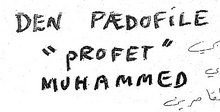 DEN PÆDOFILE
"PROFET"
MUHAMMED